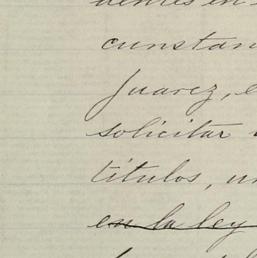 cunstan
Juarez, e
solicitar
títulos, un
en la ley